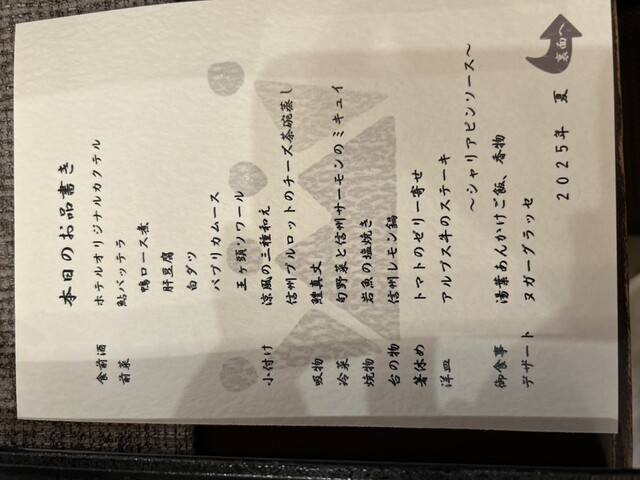 本日のお品書き
食前酒 ホテルオリジナルカクテル
前菜 鮎バッテラ
鴨ロース煮
肝豆腐
白ダツ
パプリカムース
王ヶ頭ソワール
小付け 涼風の三種和え
信州ブルロットのチーズ茶碗蒸し
吸物 鱧真丈
冷菜 旬野菜と信州サーモンのミキュイ
焼物 岩魚の塩焼き
台の物 信州レモン鍋
箸休め トマトのゼリー寄せ
洋皿 アルプス牛のステーキ
～シャリアピンソース～
御食事 湯葉あんかけご飯、香物
デザート ヌガーグラッセ
2025年 夏
裏面へ